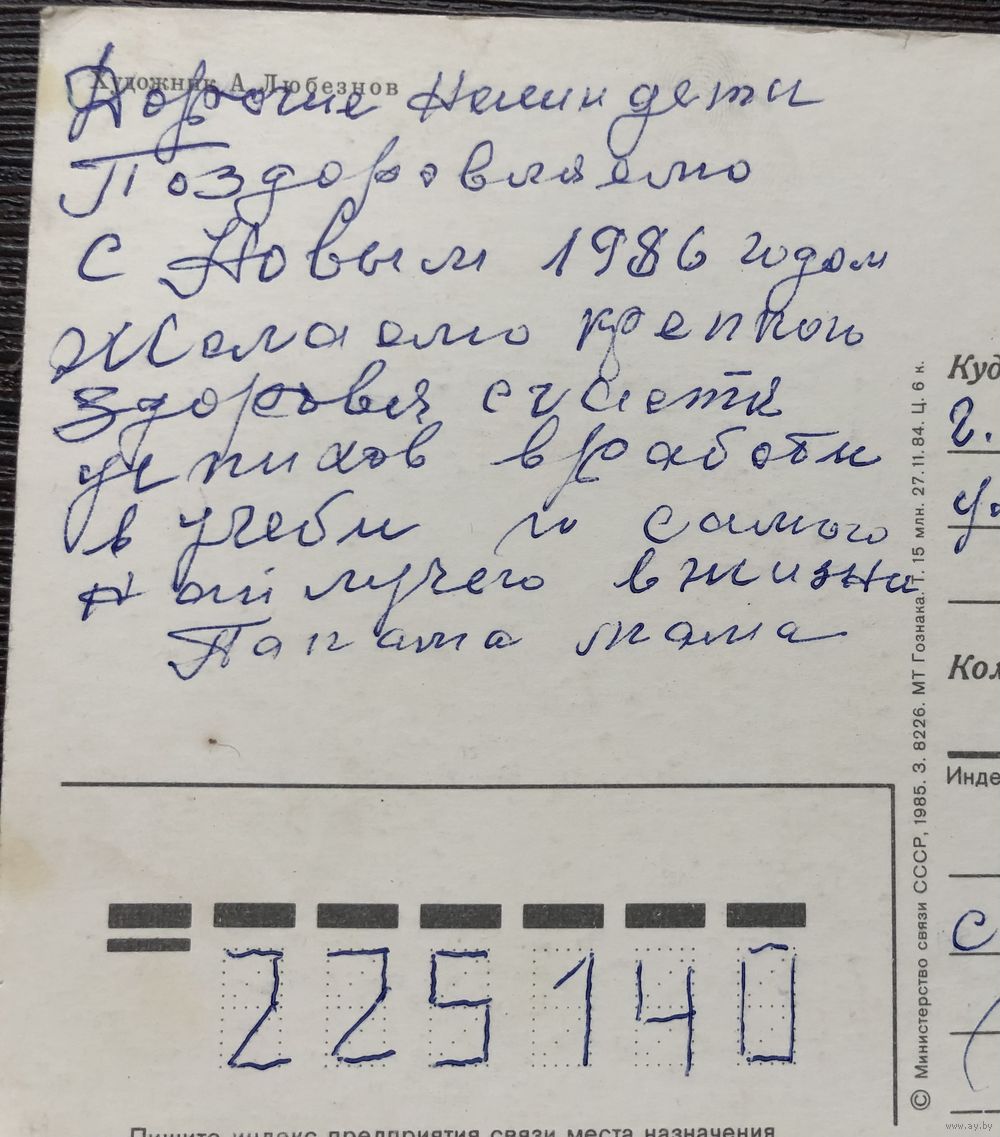 Художник А. Любезнов
Дорогие Наши дети
Поздоровляемо
с Новым 1986 годом
Желаемо крепкого
здоровья счастя
успихов в работи
в учеби и самого
най лучего в жизни
Папа мама
Куд
г.
ул
Кол
Инде
с
225140
© Министерство связи СССР, 1985. З. 8226. МТ Гознака. Т. 15 млн. 27.11.84. Ц. 6 к.
Пишите индекс предприятия связи места назначения
www.ay.by